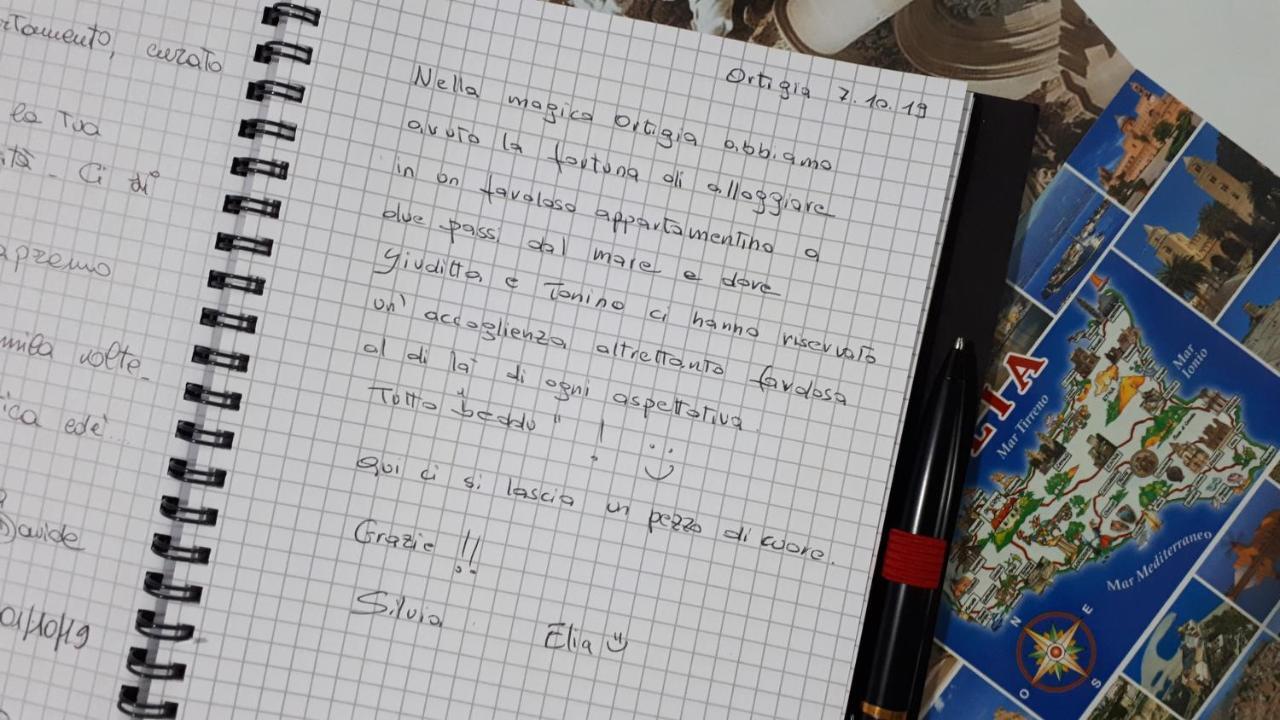 rtamento, curato
la Tua
ità - Ci di
apremo
mila volte.
ica ed è...
Davide
Ortigia 7.10.19
Nella magica Ortigia abbiamo
avuto la fortuna di alloggiare
in un favoloso appartamentino a
due passi dal mare e dove
Giuditta e Tonino ci hanno riservato
un' accoglienza altrettanto favolosa
al di là di ogni aspettativa.
Tutto beddu" ! :)
Qui ci si lascia un pezzo di cuore.
Grazie !!
Silvia Elia
LIA
Mar Tirreno
Mar Ionio
Mar Mediterraneo
N
E
S
O